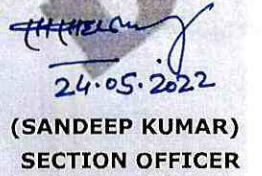 24.05.2022
(SANDEEP KUMAR)
SECTION OFFICER